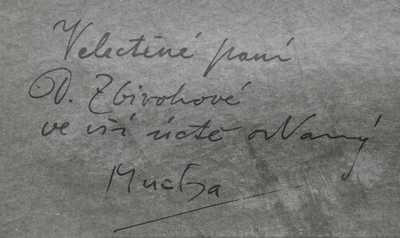 Velectěné paní
D. Zbirohové
ve vší úctě oddaný
Mucha